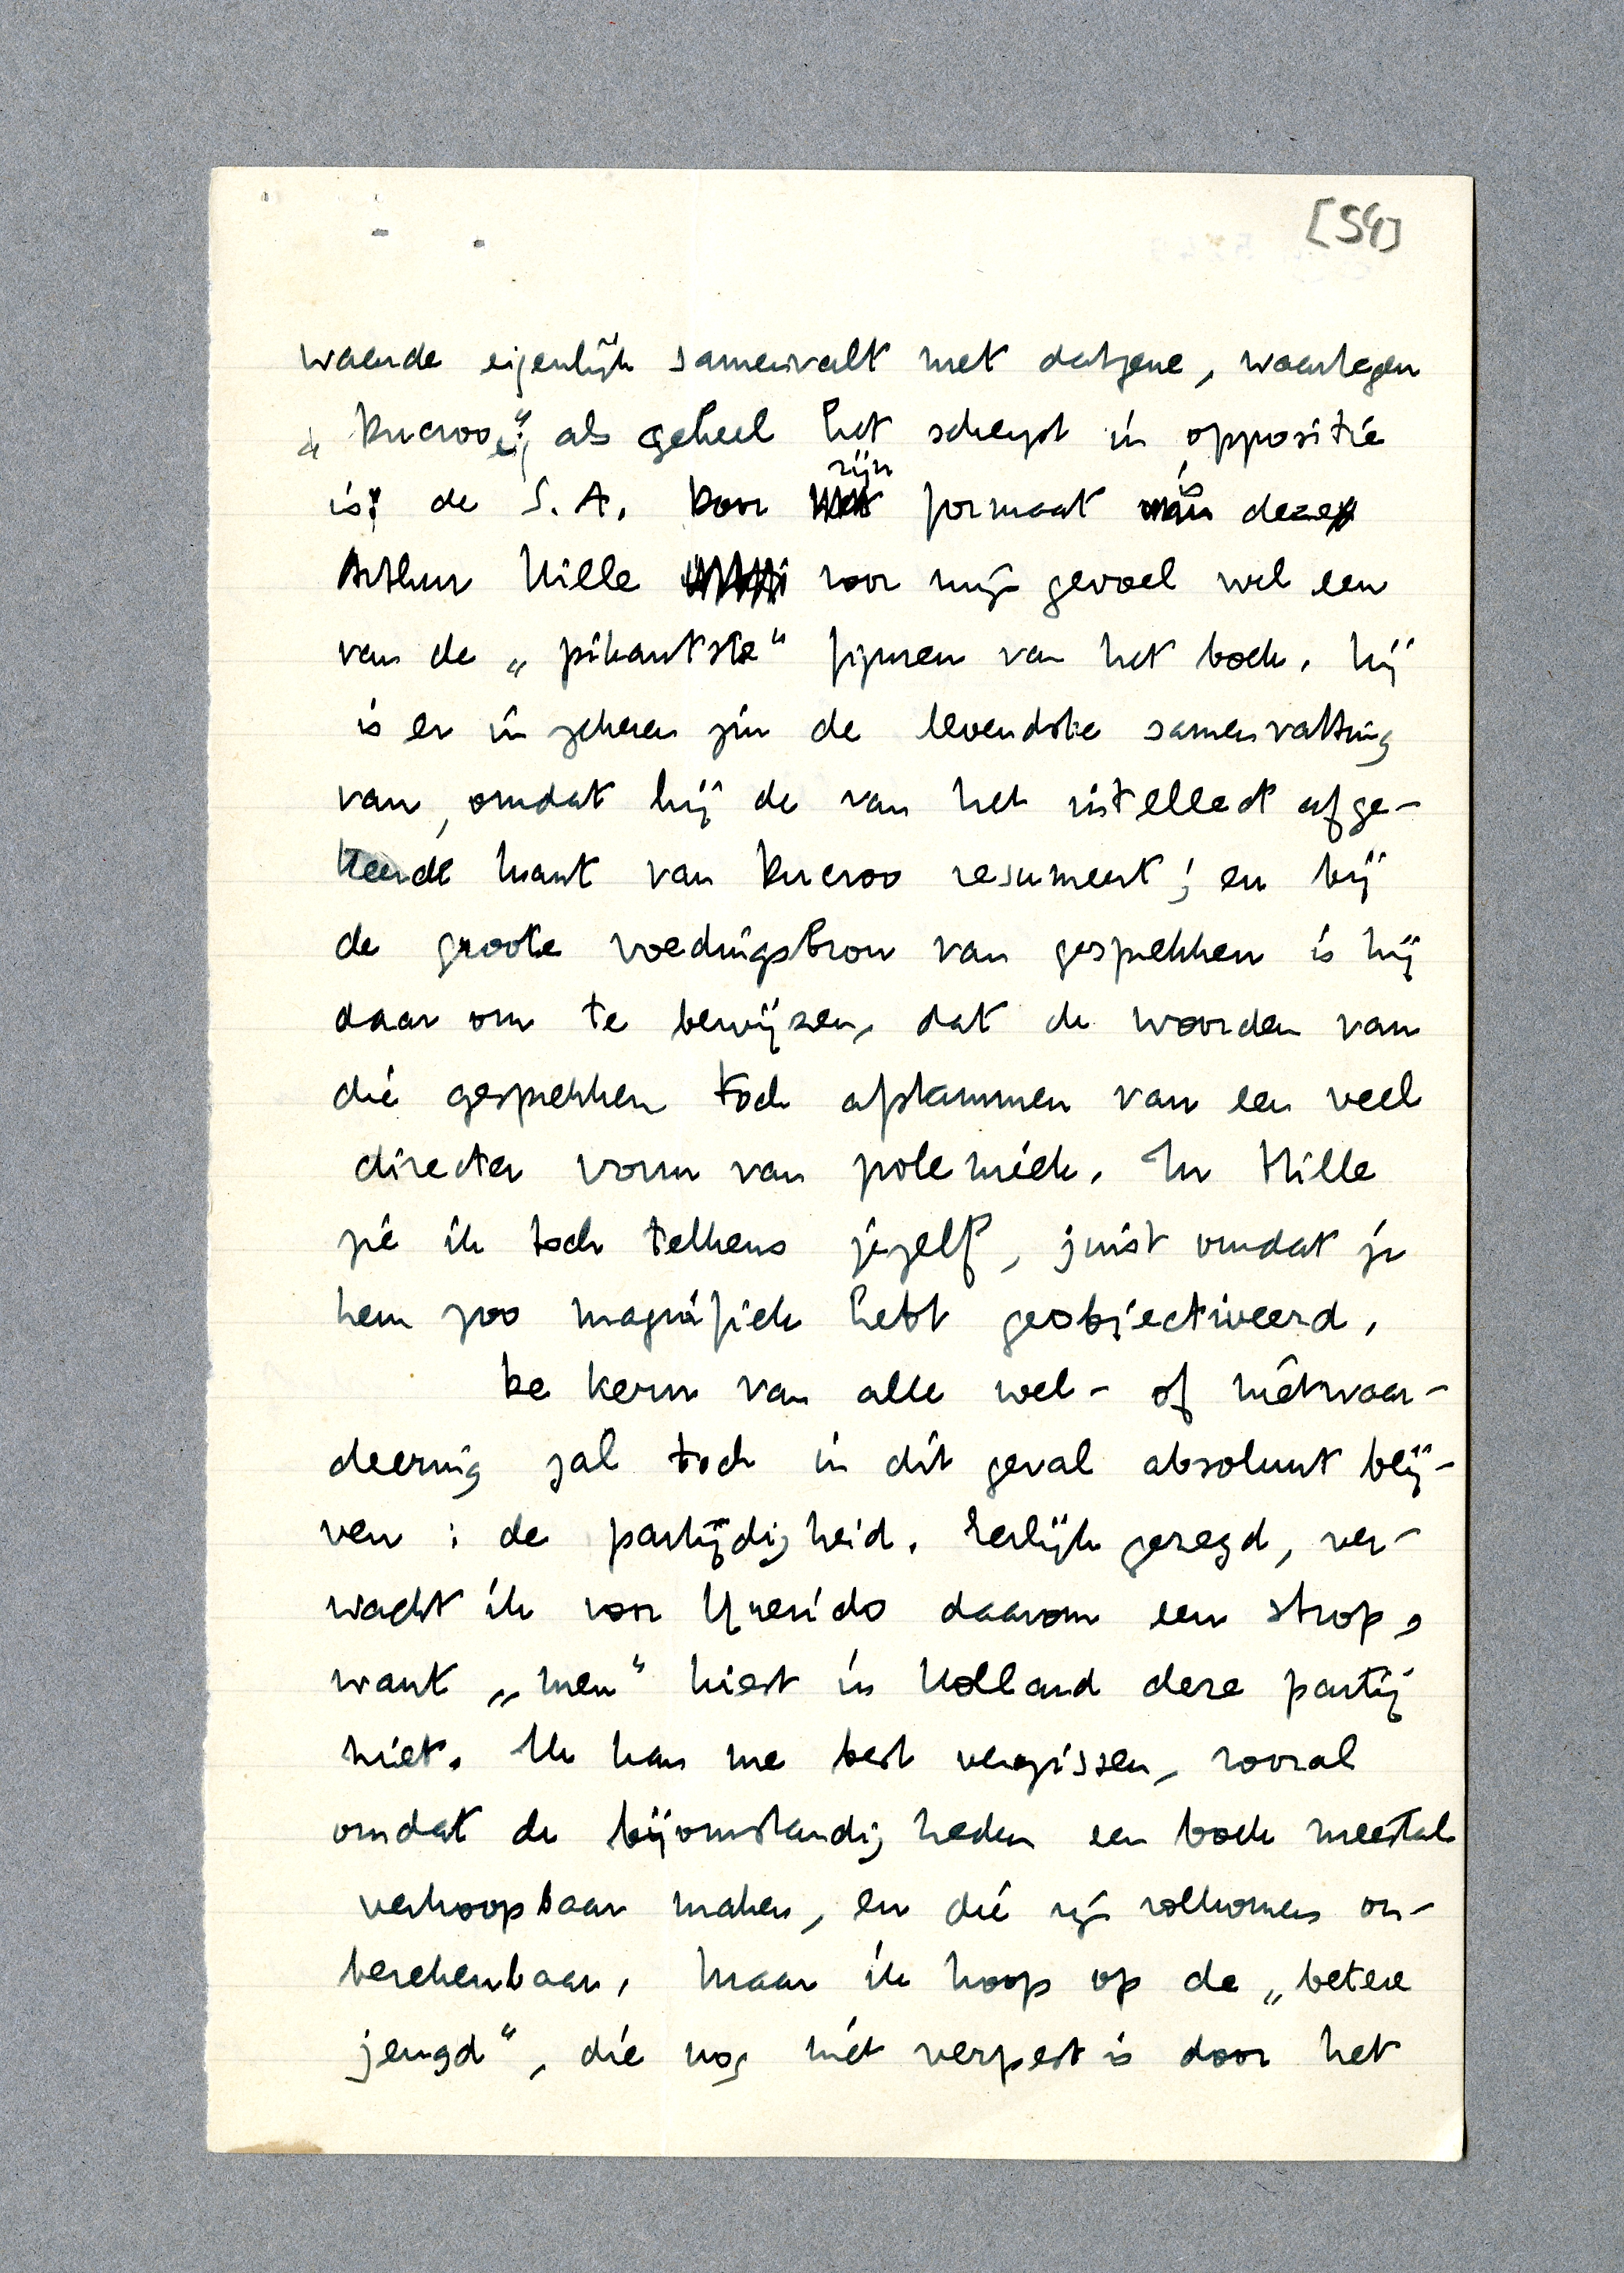 [54]
waarde eigenlijk samenvalt met datgene, waartegen
„Ducroo”, als geheel het scherpst in oppositie
is: de S.A. Door zijn formaat is deze
Arthur Hille voor mijn gevoel wel een
van de „pikantste” figuren van het boek. Hij
is er in zekeren zin de levendste samenvatting
van, omdat hij de van het intellect afge-
keerde kant van Ducroo resumeert; en bij
de groote voedingsbron van gesprekken is hij
daar om te bewijzen, dat de woorden van
die gesprekken toch afstammen van een veel
directer vorm van polemiek. In Hille
zie ik toch telkens jezelf, juist omdat je
hem zoo magnifiek hebt geobjectiveerd.
De kern van alle wel- of nietwaar-
deering zal toch in dit geval absoluut blij-
ven: de partijdigheid. Eerlijk gezegd, ver-
wacht ik voor Querido daarom een strop,
want „men” kiest in Holland deze partij
niet. Ik kan me best vergissen, vooral
omdat de bijomstandigheden een boek meestal
verkoopbaar maken, en die zijn volkomen on-
berekenbaar. Maar ik hoop op de „betere
jeugd”, die nog niet verpest is door het